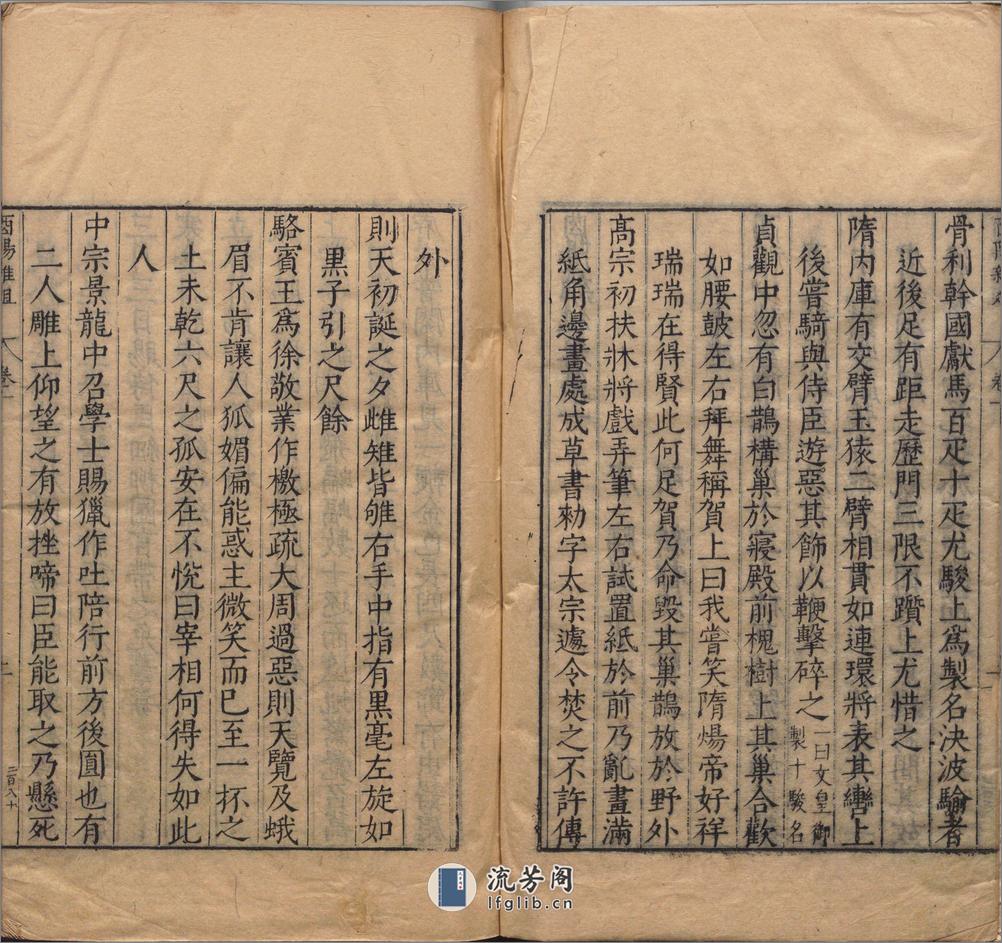 骨利幹國獻馬百疋十疋尤駿上爲製名決波騟者
近後足有距走歷門三限不躓上尤惜之
隋内庫有交臂玉猿二臂相貫如連環將表其轡上
後嘗騎與侍臣遊惡其飾以鞭擊碎之一曰文皇御製十駿名
貞觀中忽有白鵲構巢於寢殿前槐樹上其巢合歡
如腰皷左右拜舞稱賀上曰我嘗笑隋煬帝好祥
瑞瑞在得賢此何足賀乃命毁其巢鵲放於野外
髙宗初扶牀將戲弄筆左右試置紙於前乃亂畫滿
紙角邊畫處成草書勑字太宗遽令焚之不許傳
外
則天初誕之夕雌雉皆雊右手中指有黒毫左旋如
黒子引之尺餘
駱賓王爲徐敬業作檄極疏大周過惡則天覽及蛾
眉不肯讓人狐媚偏能惑主微笑而已至一抔之
土未乾六尺之孤安在不悅曰宰相何得失如此
人
中宗景龍中召學士賜獵作吐陪行前方後圓也有
二人雕上仰望之有放挫啼曰臣能取之乃懸死
酉陽雜俎 卷一
二百八十
流芳阁
lfglib.cn